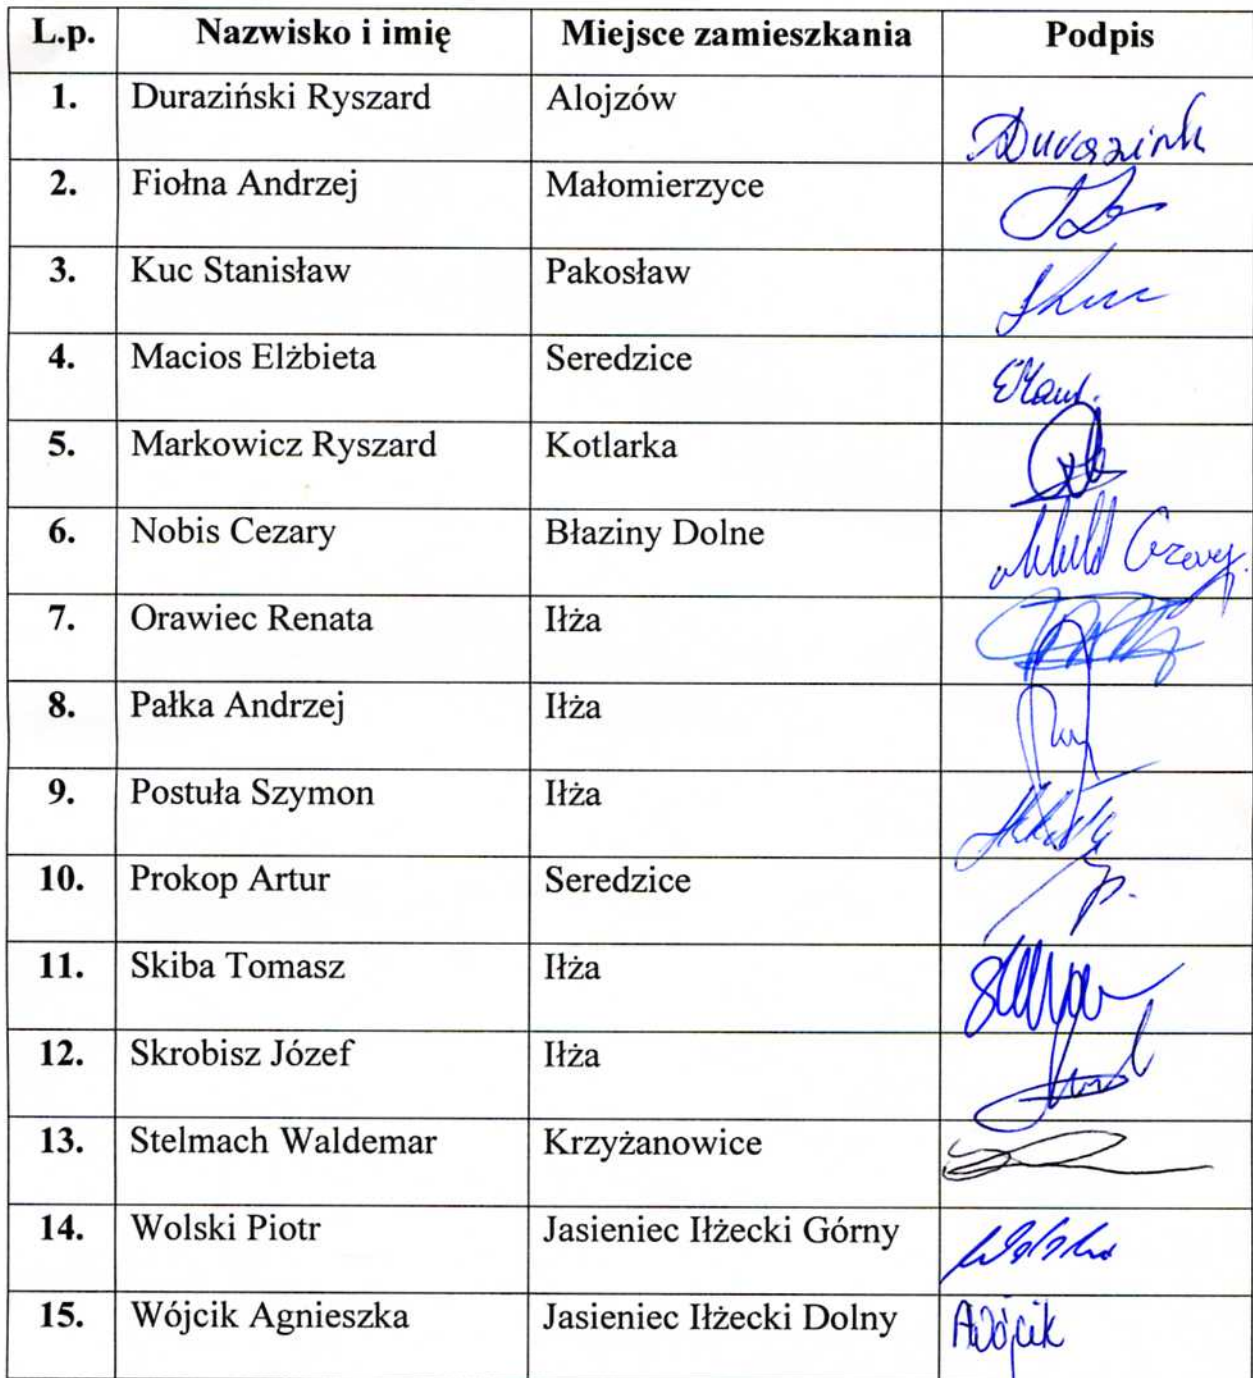 L.p. Nazwisko i imię Miejsce zamieszkania Podpis
1. Duraziński Ryszard Alojzów
2. Fiołna Andrzej Małomierzyce
3. Kuc Stanisław Pakosław
4. Macios Elżbieta Seredzice
5. Markowicz Ryszard Kotlarka
6. Nobis Cezary Błaziny Dolne Cezary
7. Orawiec Renata Iłża
8. Pałka Andrzej Iłża
9. Postuła Szymon Iłża
10. Prokop Artur Seredzice
11. Skiba Tomasz Iłża
12. Skrobisz Józef Iłża
13. Stelmach Waldemar Krzyżanowice
14. Wolski Piotr Jasieniec Iłżecki Górny
15. Wójcik Agnieszka Jasieniec Iłżecki Dolny AWójcik